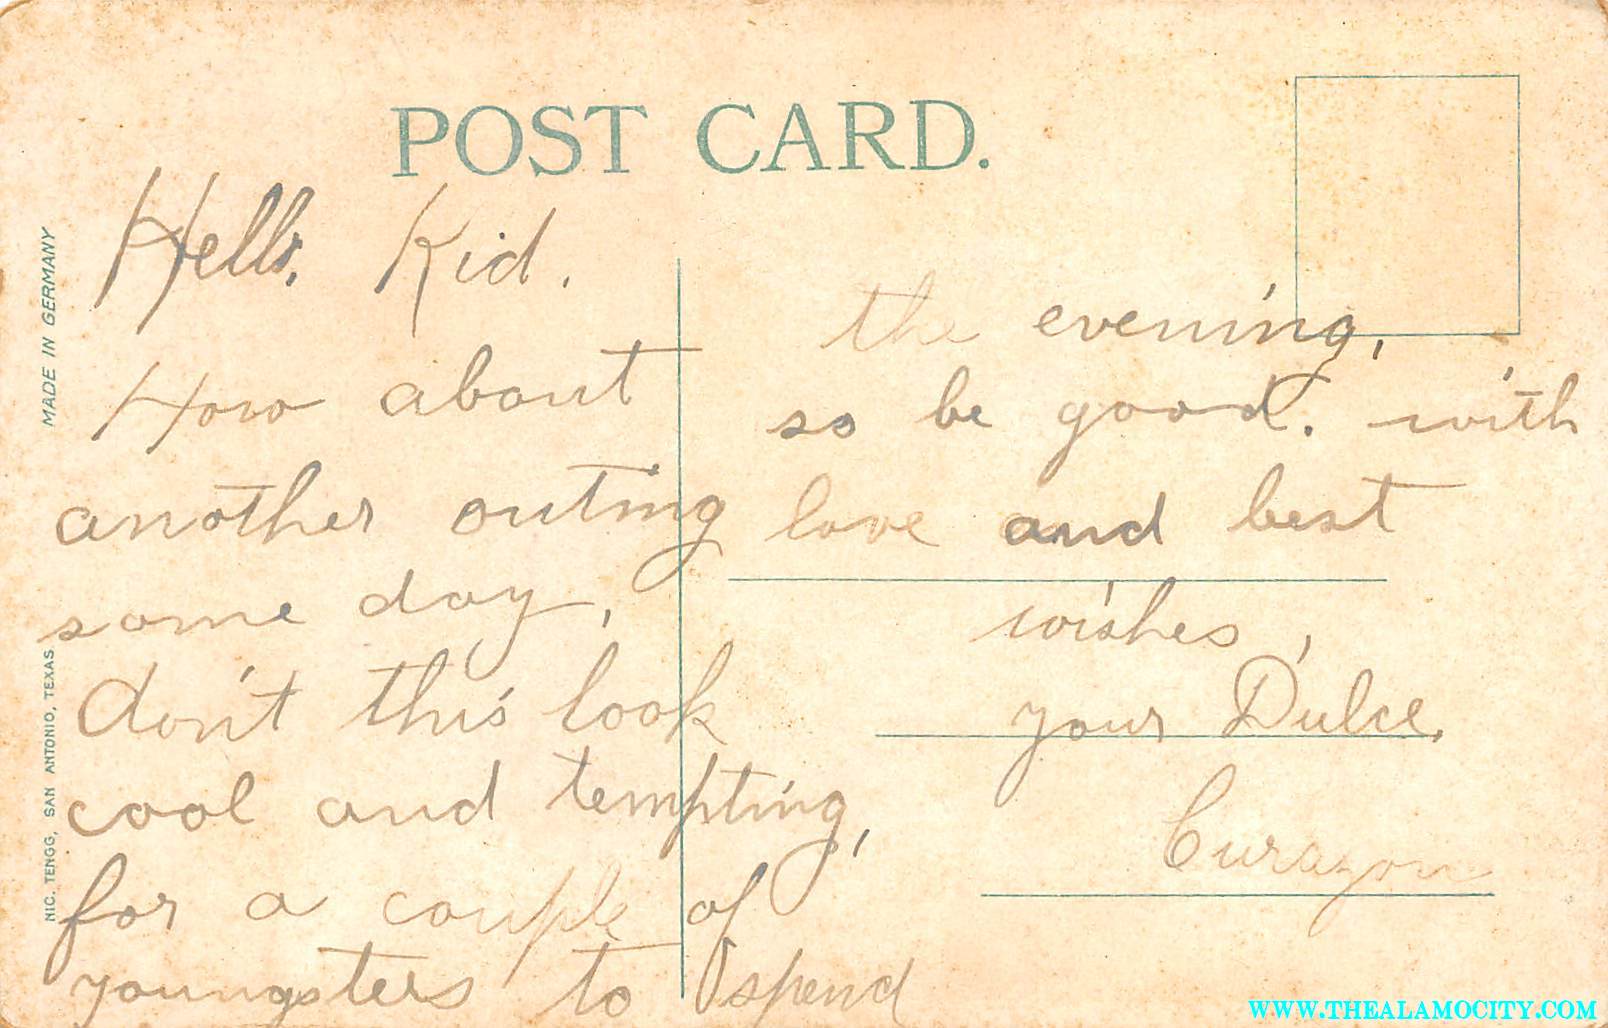 POST CARD.
MADE IN GERMANY
NIC. TENGG, SAN ANTONIO, TEXAS
Hello, Kid.
How about
another outing
some day,
don't this look
cool and tempting,
for a couple of
youngsters to spend
the evening,
so be good. with
love and best
wishes,
your Dulce.
Curazon
WWW.THEALAMOCITY.COM